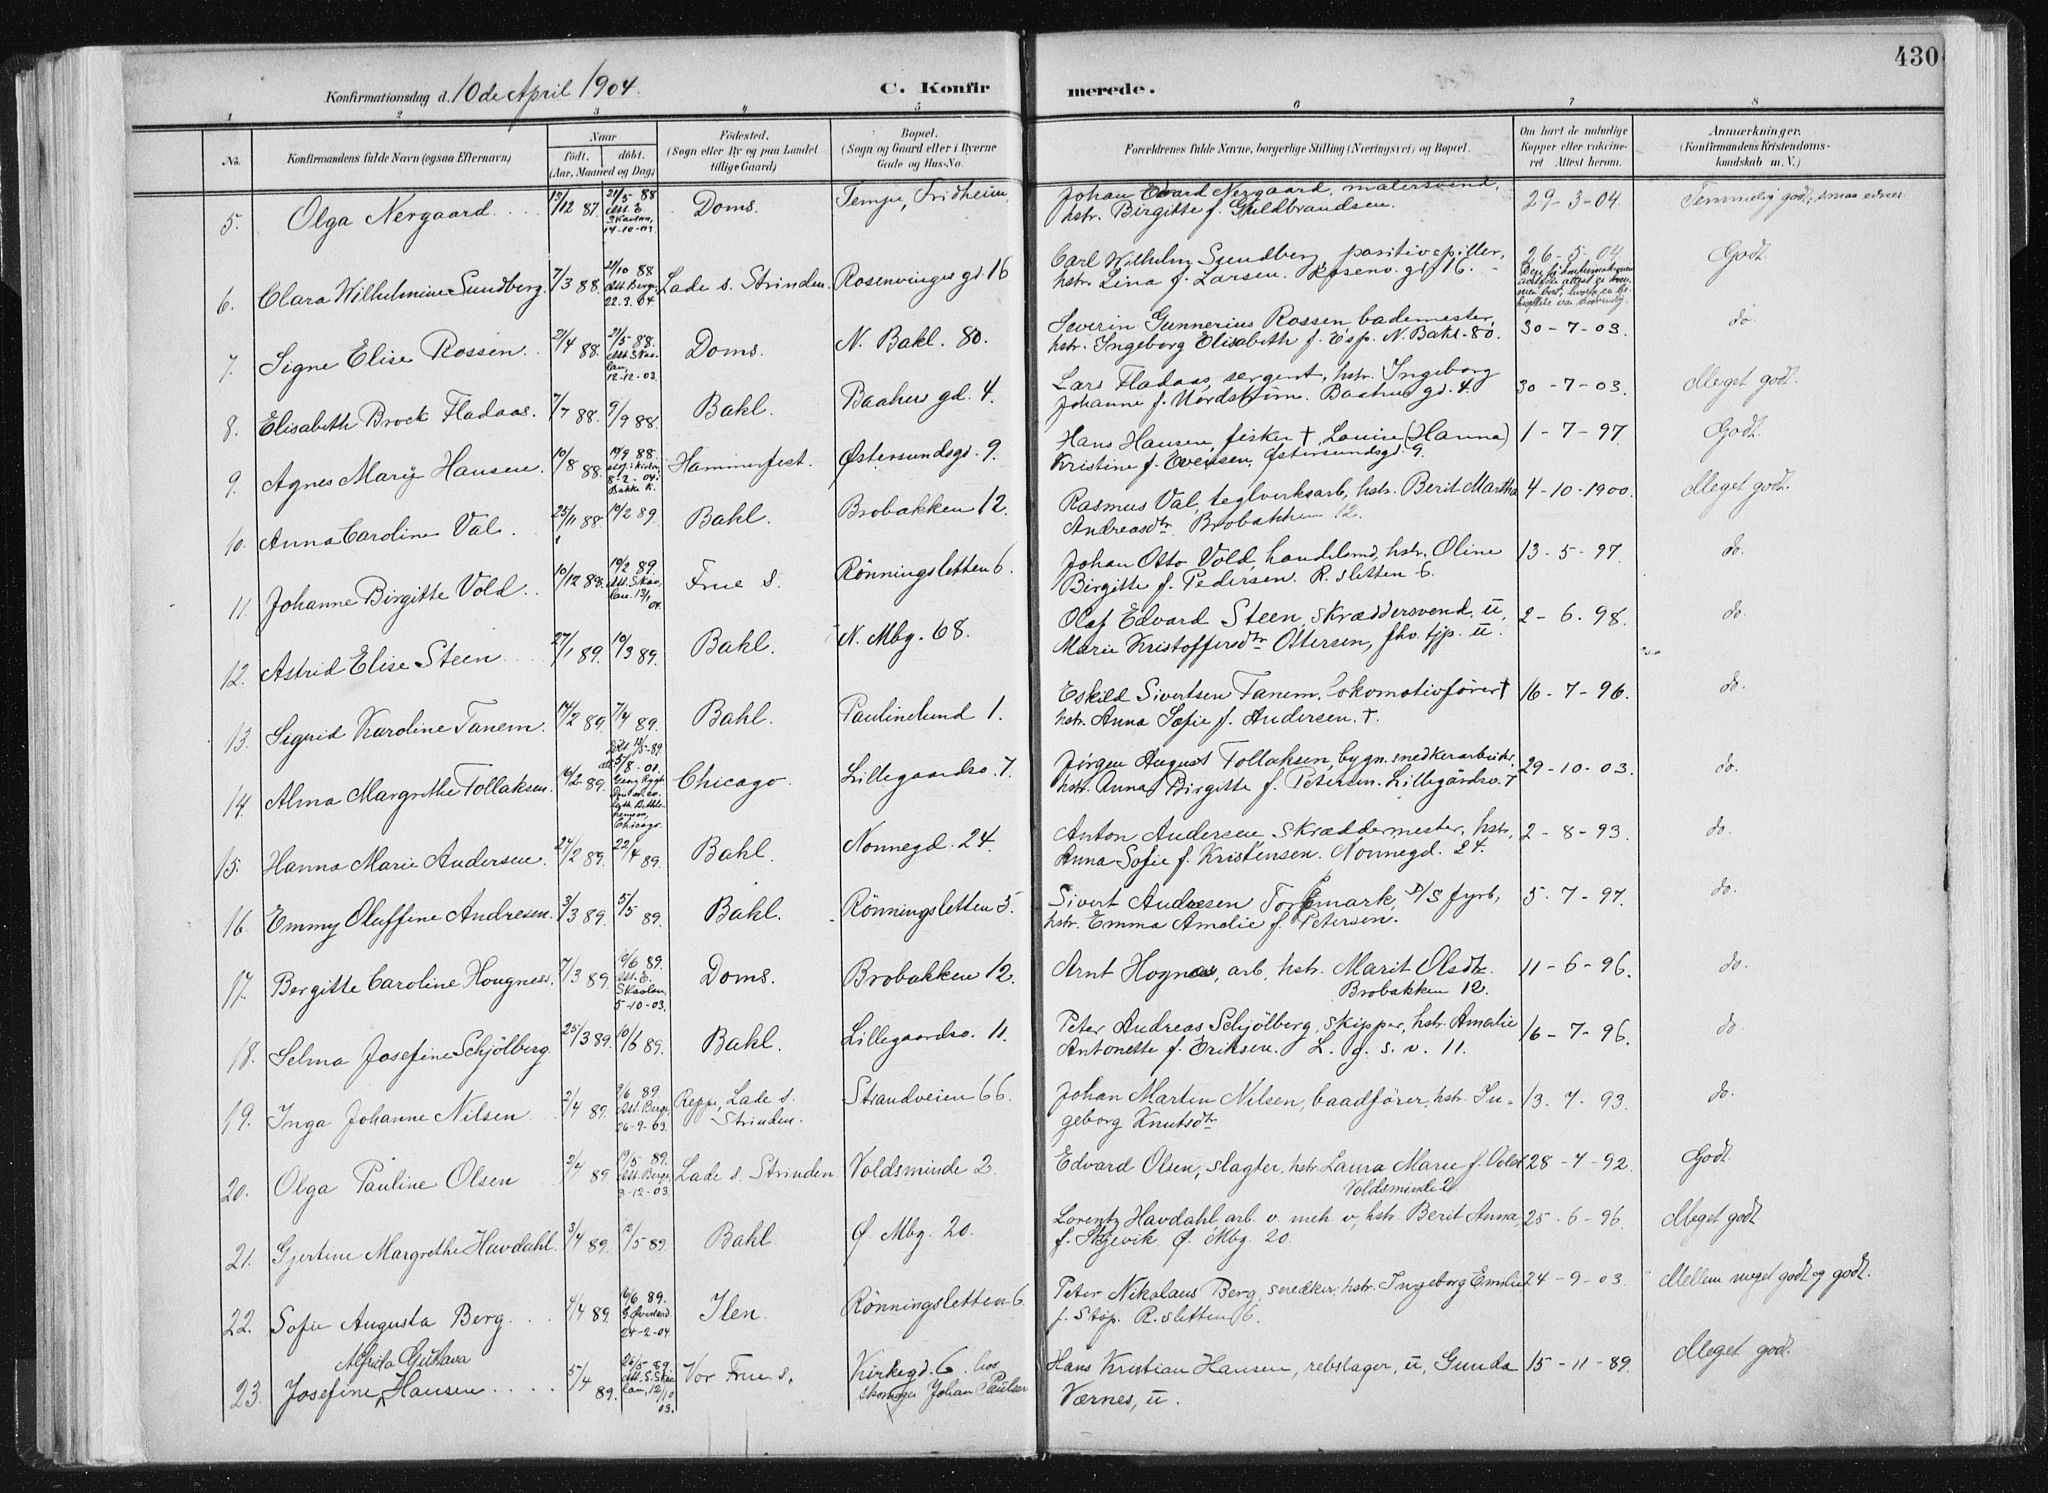 430
Konfirmationsdag d. 10de April 1904.
C. Konfirmerede.
1 2 3 4 5 6 7 8
No. Konfirmandens fulde Navn (egsaa Efternavn) Naar født. døbt. (Aar, Maaned og Dag) Födested. (Sogn eller By og paa Landet tillige Gaard) Bopæl. (Sogn og Gaard eller i Byerne Gade og Hus-No. Forældrenes fulde Navne, borgerlige Stilling (Næringsvei) og Bopæl. Om havt de naturlige Kopper eller vaccineret Attest herom. Anmærkninger. (Konfirmandens Kristendomskundskab m. V.)
5. Olga Nergaard 13/12 87. 21/5 88 Att. E. Skavlan, 14-10-03. Doms. Tempe, Fridheim Johan Edvard Nergaard, malersvend,
hstr. Birgitte f. Guldbrandsen. 29-3-04. Temmelig godt,
6. Clara Wilhelmine Sundberg. 7/3 88. 21/10 88 Att. Berge 22.3.04. Lade s. Strinden. Rosenvinges gd. 16 Carl Wilhelm Sundberg, positivspiller,
hstr. Lina f. Larsen. Rosenv. gd. 16. 26-5-04 Godt.
7. Signe Elise Rossen. 21/4 88. 21/5 88. Att. Skavlan, 12-12-03. Doms. N. Bakl. 80. Severin Gunnerius Rossen, bademester,
hstr. Ingeborg Elisabeth f. Esp. N. Bakl. 80. 30-7-03. do.
8. Elisabeth Brock Fladaas. 7/7 88. 9/9 88. Bakl. Baahus gd. 4. Lars Fladaas, sergent, hstr. Ingeborg
Johanne f. Nordstrøm. Baahus gd. 4. 30-7-03. Meget godt.
9. Agnes Mary Hansen. 10/8 88. 14/9 88. 8-2-04. Bakke K. Hammerfest. Østersundsgd. 9. Hans Hansen, fisker †, Louise (Hanna)
Kristine f. Evensen, Østersundsgd. 9. 1-7-97. Godt.
10. Anna Caroline Val. 25/11 88. 10/2 89. Bakl. Brobakken 12. Rasmus Val, teglverksarb, hstr. Berit Martha
Andreasdtr. Brobakken 12. 4-10-1900. Meget godt.
11. Johanne Birgitte Vold. 10/12 88. 10/2 89. Att. Skavlan. 13/1 04. Frue s. Rönningsletten 6. Johan Otto Vold, handelsmd, hstr. Oline
Birgitte f. Pedersen. R. sletten 6. 13-5-97. do.
12. Astrid Elise Steen 27/1 89. 10/3 89. Bakl. N. Mbg. 68. Olaf Edvard Steen, skræddersvend, u,
Marie Kristoffersdtr Ottersen, fhv. tjp. u. 2-6-98. do.
13. Sigrid Karoline Tanem. 14/2 89. 7/4 89. Bakl. Paulinelund 1. Eskild Sivertsen Tanem, Lokomotivfører †
hstr. Anna Sofie f. Andersen. †. 16-7-96. do.
14. Alma Margrethe Tollaksen. 16/2 89. Chicago. Chicago. Lillegaardsv. 7. Jørgen August Tollaksen, bygn. snedkerarbeider,
hstr. Anna Birgitte f. Petersen. Lillegårdsv. 7 29-10-03. do.
15. Hanna Marie Andersen. 24/2 89. 22/4 89. Bakl. Nonnegd. 24. Anton Andersen, skræddermester, hstr.
Anna Sofie f. Kristensen. Nonnegd. 24. 2-8-93. do.
16. Emmy Oluffine Andresen. 3/3 89. 5/5 89. Bakl. Rönningsletten 5. Sivert Andresen Torgmark, D/S fyrb,
hstr. Emma Amalie f. Petersen. 5-7-97. do.
17. Bergitte Caroline Hougnes. 7/3 89. 16/6 89. Att. E. Skavlan, 5-10-03. Doms. Brobakken 12. Arnt Hognæs, arb, hstr. Marit Olsdtr.
Brobakken 12. 11-6-96. do.
18. Selma Josefine Schjölberg 25/3 89. 10/6 89. Bakl. Lillegaardsv. 11. Peter Andreas Schjölberg, skipper, hstr. Amalie
Antonette f. Eriksen. L. g. s. v. 11. 16-7-96. do
19. Inga Johanne Nilsen 2/4 89. 9/6 89. Att. Berge, 26-9-03. Reppe, Lade s. Strinden. Strandveien 66. Johan Martin Nilsen, baadfører, hstr. In-
geborg Knutsdtr 13-7-93. do.
20. Olga Pauline Olsen 2/4 89. 19/5 89. Att. Berge, 9-12-03. Lade s. Strinden Voldsminde 2. Edvard Olsen, slagter, hstr. Laura Marie f. Vold
Voldsminde 2 28-7-92. Godt.
21. Gjertine Margrethe Havdahl. 3/4 89. 12/5 89. Bakl. Ø. Mbg. 20. Lorentz Havdahl, arb. v. meh. v, hstr. Berit Anna
f. Skjevik. Ø. Mbg. 20. 25-6-96. Meget godt
22. Sofie Augusta Berg. 4/4 89. 16/6 89. 24-2-04 Ilen. Rönningsletten 6. Peter Nikolaus Berg, snedker, hstr. Ingeborg Emilie
f. Stöp. R. sletten 6. 24-9-03. Mellem meget godt og godt.
Alfrida Gustava
23. Josefine Hansen 5/4 89. 26/5 89. Att. S. Skavlan, 12/10 03. Vor Frue s. Kirkegd. 6. hos skomager Johan Paulsen Hans Kristian Hansen, rebslager, u, Gunda
Værnes, u. 15-11-89 Meget godt.